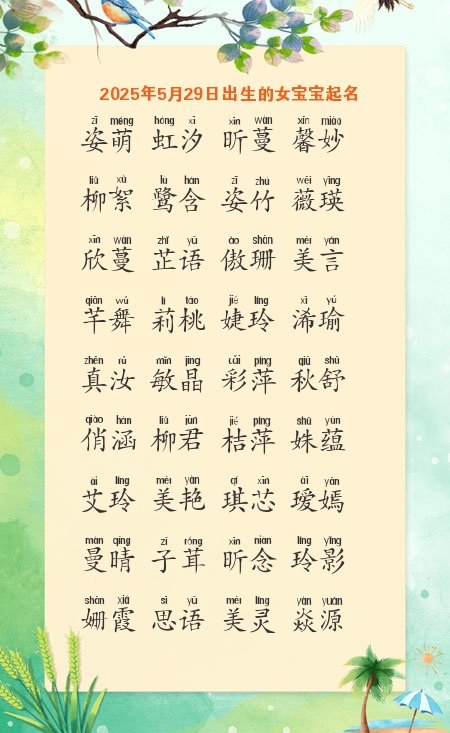 2025年5月29日出生的女宝宝起名
zī méng hóng xī xīn wàn xīn miào
姿萌 虹汐 昕蔓 馨妙
liǔ xù lù hán zī zhú wēi yīng
柳絮 鹭含 姿竹 薇瑛
xīn wàn zhǐ yǔ ào shān měi yán
欣蔓 芷语 傲珊 美言
qiān wǔ lì táo jié líng xī yú
芊舞 莉桃 婕玲 浠瑜
zhēn rǔ mǐn jīng cǎi píng qiū shū
真汝 敏晶 彩萍 秋舒
qiào hán liǔ jūn jié píng shū yùn
俏涵 柳君 桔萍 姝蕴
ài líng měi yàn qí xīn ài yān
艾玲 美艳 琪芯 瑷嫣
màn qíng zǐ róng xīn niàn líng yǐng
曼晴 子茸 昕念 玲影
shān xiá sī yǔ měi líng yàn yuán
姗霞 思语 美灵 焱源